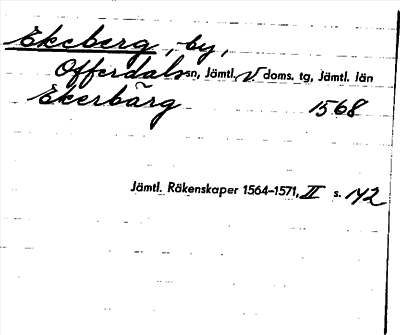 Ekeberg, by,
Offerdals sn, Jämtl. V doms. tg, Jämtl. län
Ekerbärg 1568
Jämtl. Räkenskaper 1564-1571, II s. 142